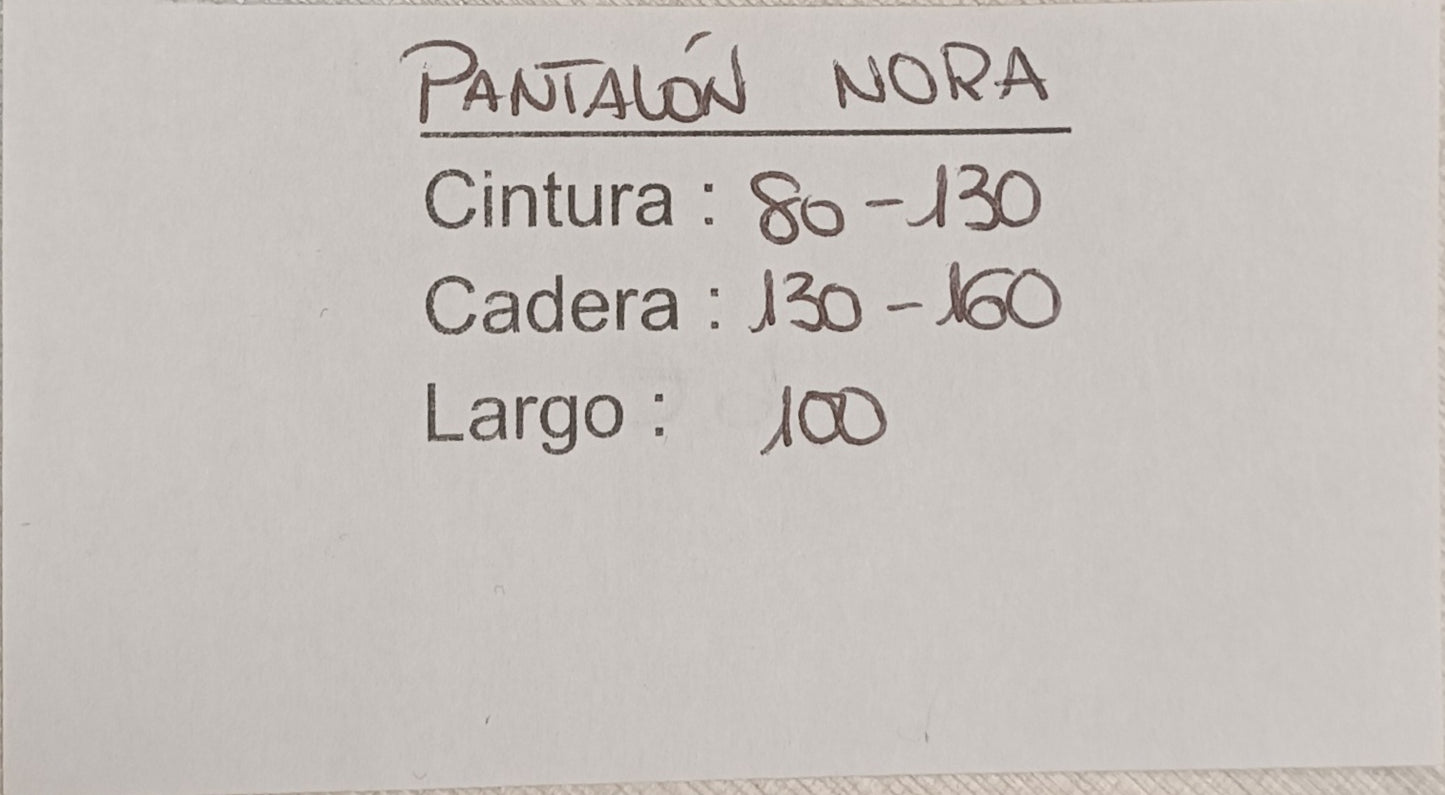 PANTALÓN NORA
Cintura : 80-130
Cadera : 130-160
Largo : 100